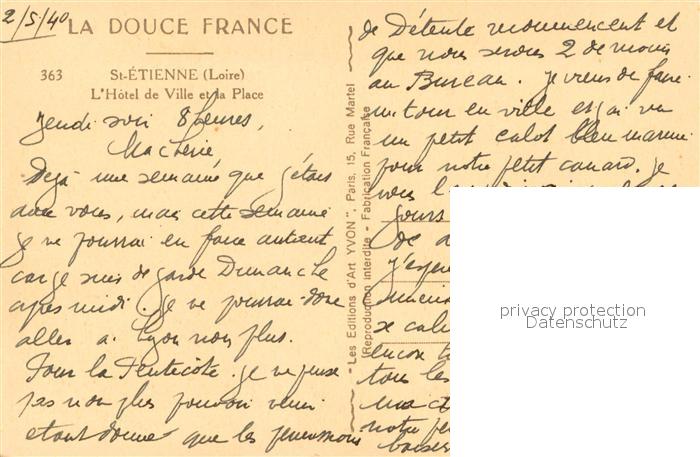 2/5/40
LA DOUCE FRANCE
363 St-ÉTIENNE (Loire)
L'Hôtel de Ville et la Place
Jeudi soir 8 heures,
Ma chérie
Dejà une semaine que j'étais
avec vous, mais cette semaine
je ne pourrai en faire autant
car je suis de garde Dimanche
après midi. je ne pourrai donc
aller a Lyon non plus.
Pour la Pentecôte. je ne pense
pas non plus pouvoir venir
étant donné que les permissions
- Les Editions d'Art YVON", Paris, 15, Rue Martel -
(Reproduction interdite - Fabrication Française
de Détente recommencent et
que nous serons 2 de moins
au Bureau. je viens de faire
un tour en ville et j'ai vu
un petit calot bleu marine
pour notre petit canard. je
vous
jours
de
j'espère
x
encore
tous les
ma
notre
baisers
privacy protection
Datenschutz